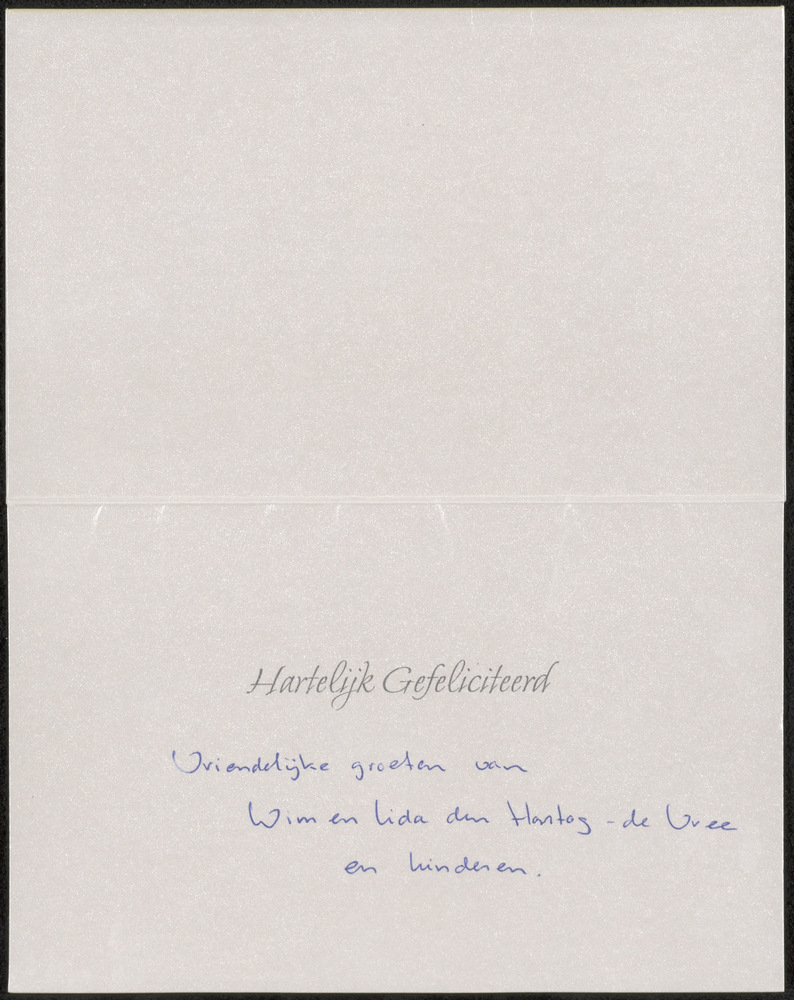 Hartelijk Gefeliciteerd
Vriendelijke groeten van
Wim en Lida den Hartog - de Vree
en kinderen.